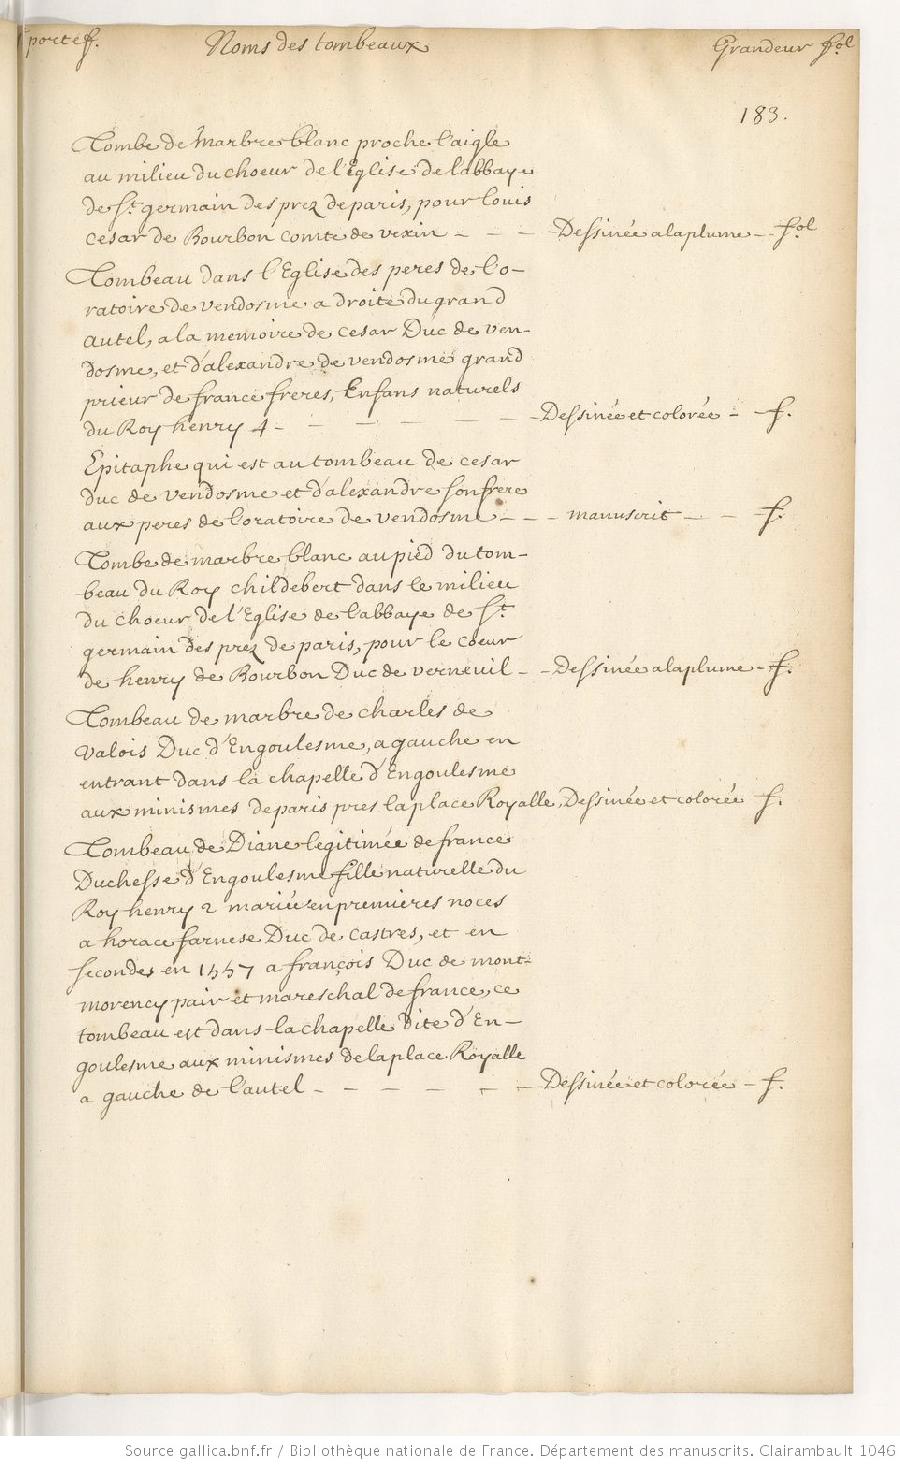 portef. Noms des tombeaux Grandeur fol
183.
Tombe de Marbre blanc proche l'aigle
au milieu du choeur de l'Eglise de l'abbaye
de St germain des prez de paris, pour louis
cesar de Bourbon comte de vexin - - - Dessinée a la plume - fol
Tombeau dans l'Eglise des peres de l'o-
ratoire de vendosme a droite du grand
autel, a la memoire de cesar Duc de ven-
dosme, et d'alexandre de vendosme grand
prieur de france freres, Enfans naturels
du Roy henry 4 - - - - - - Dessinée et colorée - f.
Epitaphe qui est au tombeau de cesar
duc de vendosme et d'alexandre son frere
aux peres de l'oratoire de vendosme - - - manuscrit - - f.
Tombe de marbre blanc au pied du tom-
beau du Roy childebert dans le milieu
du choeur de l'Eglise de l'abbaye de St
germain des prez de paris, pour le coeur
de henry de Bourbon Duc de verneuil - - Dessinée a la plume - f.
Tombeau de marbre de charles de
valois Duc d'Engoulesme, a gauche en
entrant dans la chapelle d'Engoulesme
aux minismes de paris pres la place Royalle, Dessinée et colorée f.
Tombeau de Diane legitimée de france
Duchesse d'Engoulesme fille naturelle du
Roy henry 2 mariée en premieres noces
a horace farnese Duc de castres, et en
secondes en 1557 a françois Duc de mont-
morency pair et mareschal de france, ce
tombeau est dans la chapelle dite d'En-
goulesme aux minismes de la place Royalle
a gauche de l'autel - - - - - - Dessinée et colorée - f.
Source gallica.bnf.fr / Bibliothèque nationale de France. Département des manuscrits. Clairambault 1046